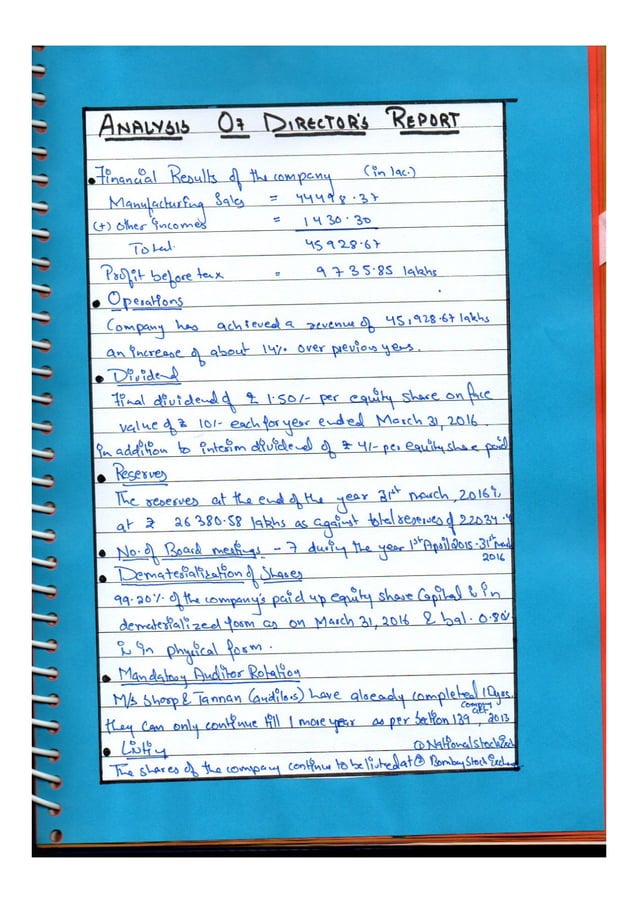 ANALYSIS OF DIRECTOR'S REPORT
• Financial Results of the company (in lac.)
Manufacturing Sales = 44498.37
(+) Other incomes = 1430.30
Total. 45928.67
Profit before tax = 9735.85 lakhs
• Operations
Company has achieved a revenue of 45,928.67 lakhs
an increase of about 14% over previous year.
• Dividend
Final dividend of ₹ 1.50/- per equity share on face
value of ₹ 10/- each for year ended March 31, 2016.
in addition to interim dividend of ₹ 4/- per equity share paid
• Reserves
The reserves at the end of the year 31st March, 2016 is
at ₹ 26380.58 lakhs as against total reserves of 22034.4
• No. of Board meetings - 7 during the year 1st April 2015 - 31st
2016
• Dematerialization of Shares
99.20% of the company's paid up equity share capital is in
dematerialized form as on March 31, 2016 & bal. 0.80%
is in physical form.
• Mandatory Auditor Rotation
M/s & Tannan (auditors) have already completed 10 yrs.
they can only continue till 1 more year as per Section 139, company act, 2013
• Listing
① National Stock
The shares of the company continue to be listed at ② Bombay Stock